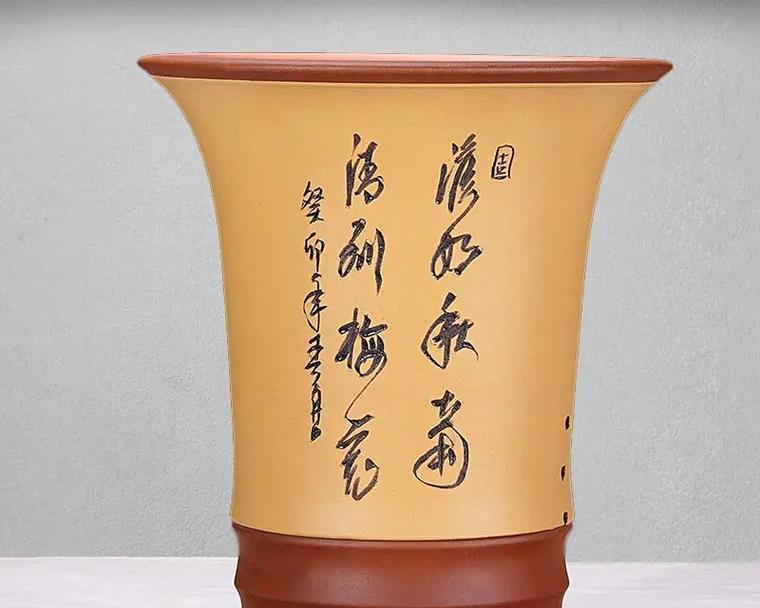 淡如秋菊
清到梅花
癸卯年